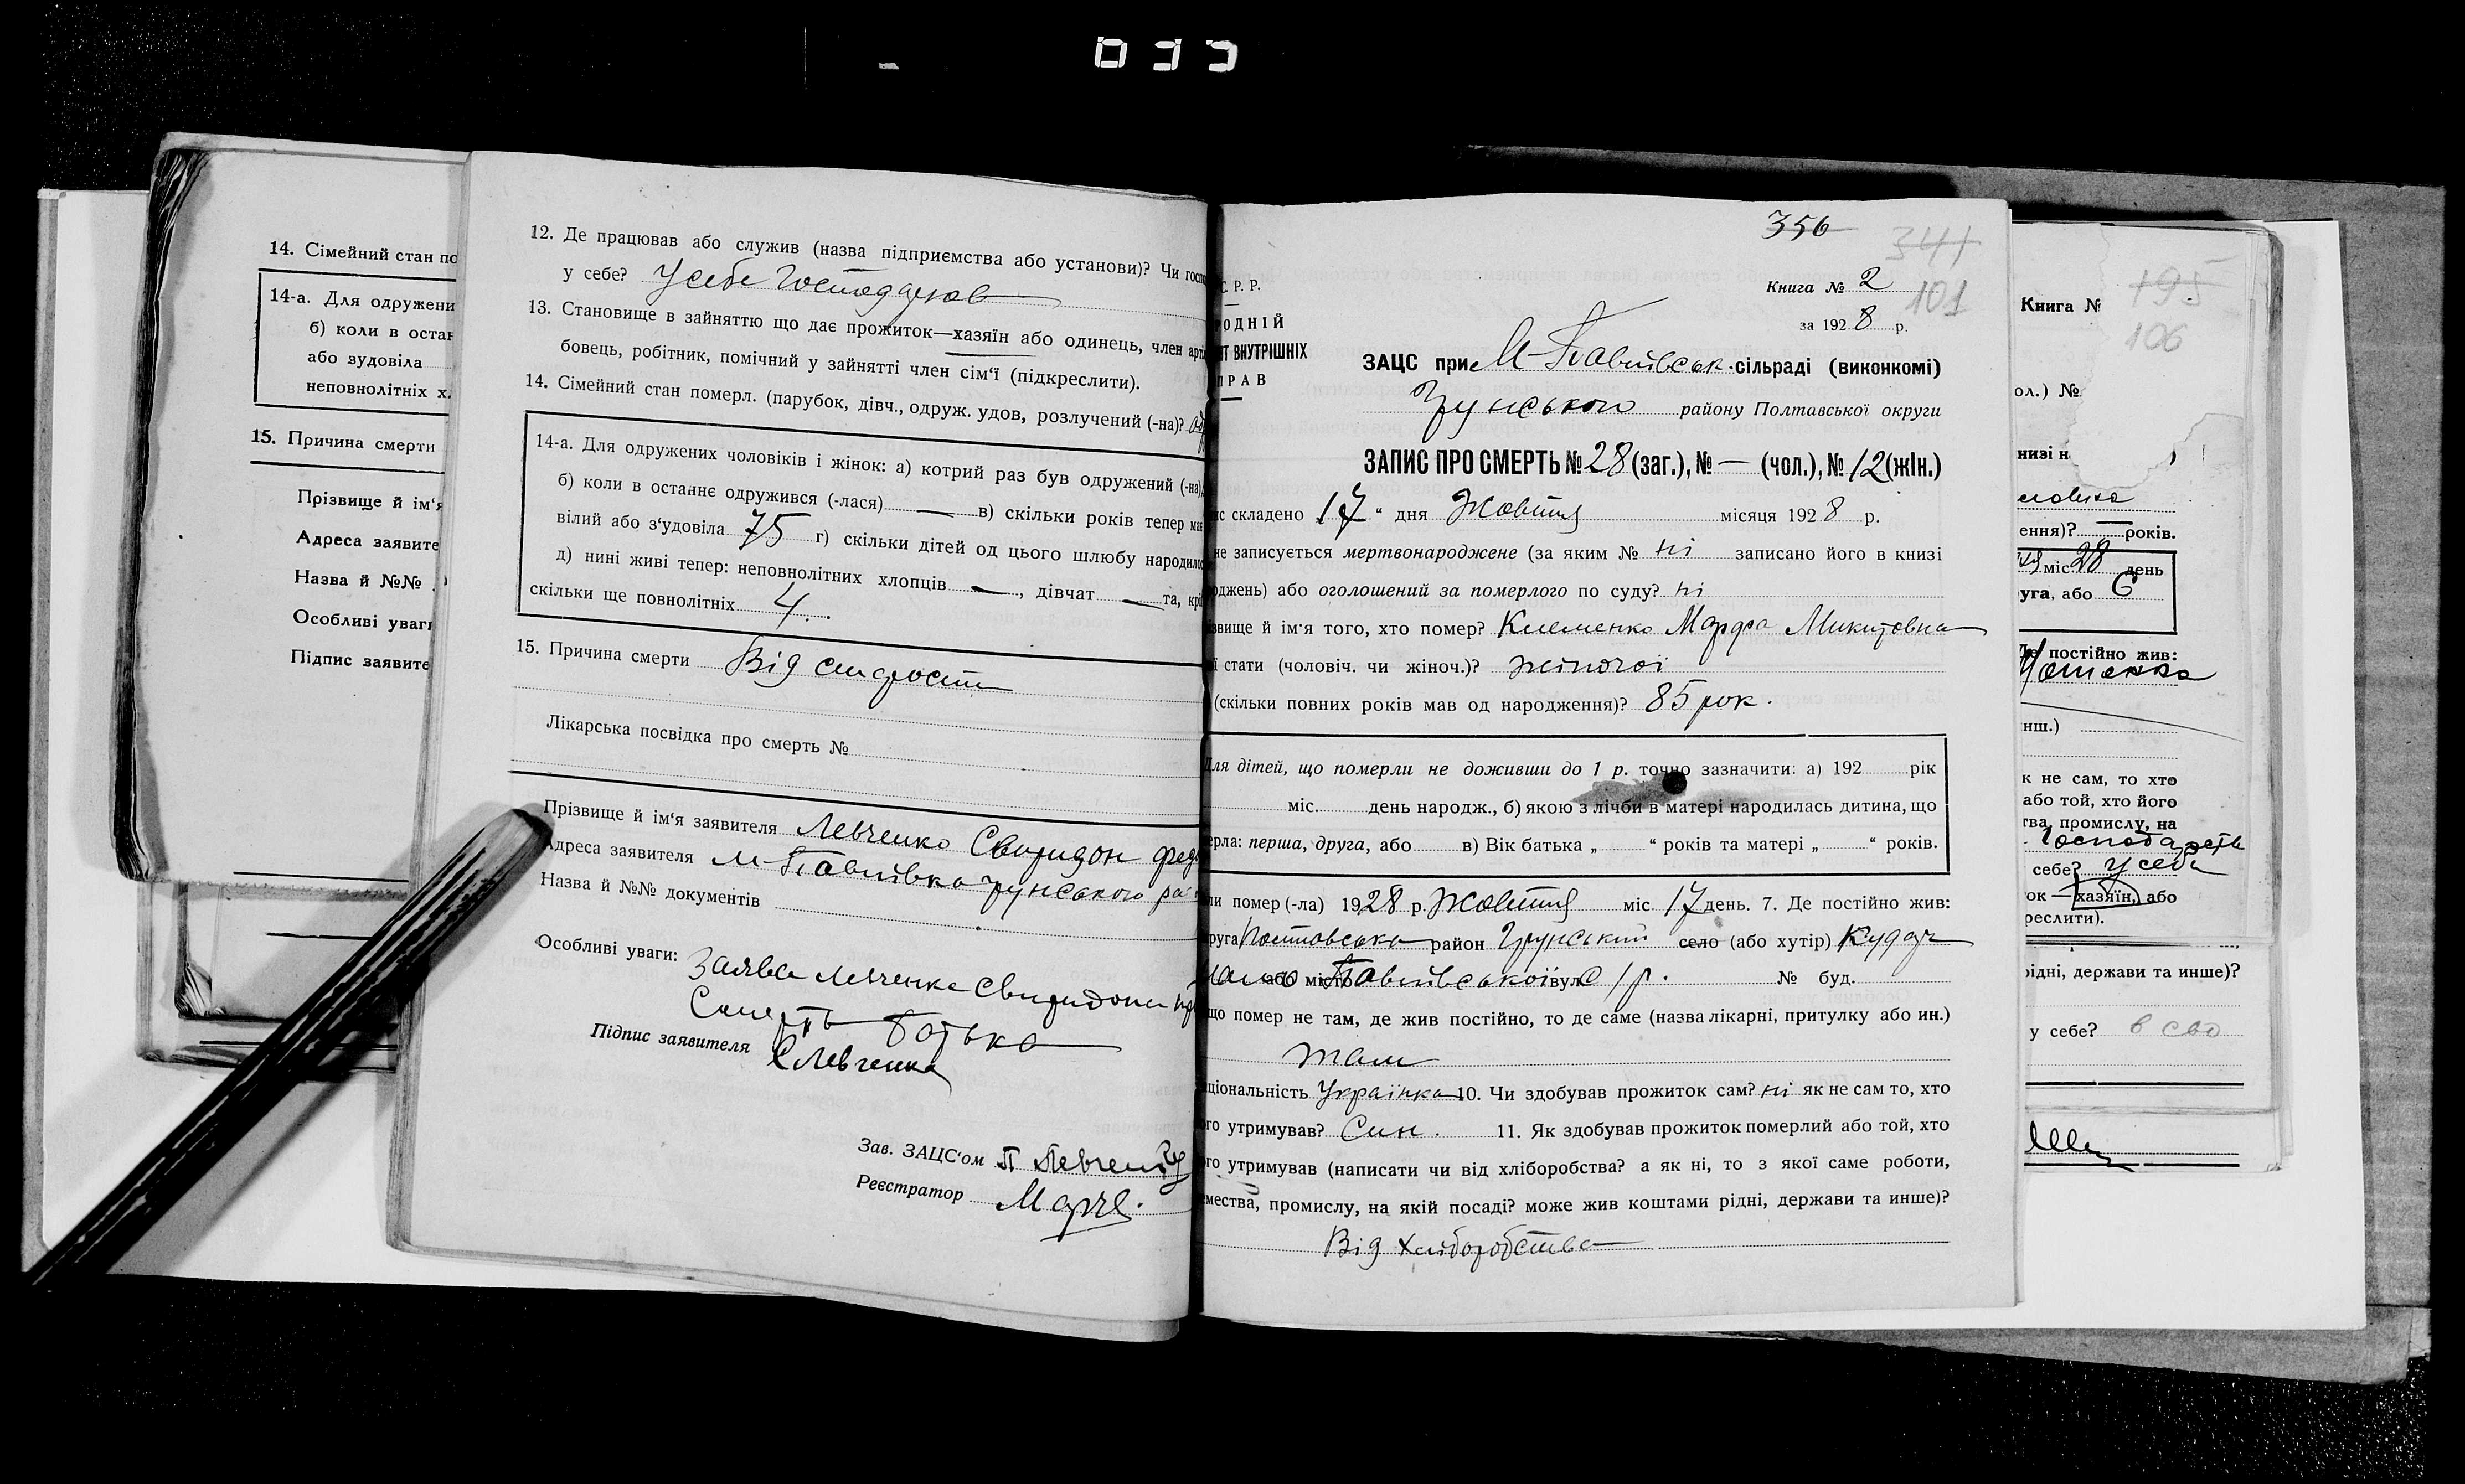 033
14. Сімейний стан по
14-а. Для одружени
б) коли в остан
або вдовіла
неповнолітніх х
15. Причина смерти
Прізвище й ім'я
Адреса заявите
Назва й №№
Особливі уваги
Підпис заявите
12. Де працював або служив (назва підприємства або установи)? Чи госпо
у себе? У себе господарюв
13. Становище в зайняттю що дає прожиток—хазяїн або одинець, член арті
бовець, робітник, помічний у зайнятті член сім'ї (підкреслити).
14. Сімейний стан померл. (парубок, дівч., одруж. удов, розлучений (-на)?
14-а. Для одружених чоловіків і жінок: а) котрий раз був одружений (-на)
б) коли в останнє одружився (-лася) — в) скільки років тепер має
вілий або з'удовіла 75 г) скільки дітей од цього шлюбу народилос
д) нині живі тепер: неповнолітних хлопців —, дівчат — та, крі
скільки ще повнолітніх 4.
15. Причина смерти Від старости
Лікарська посвідка про смерть №
Прізвище й ім'я заявителя Левченко Свиридон Фед
Адреса заявителя М-Павлівка Грунського ра
Назва й №№ документів
Особливі уваги: Заява Левченка Свиридона пр
Смерть батька
Підпис заявителя СЛевченка
Зав. ЗАЦС'ом П Левченко
Реєстратор
356
341
Книга № 2
101
С. Р. Р.
за 1928 р.
РОДНІЙ
АТ ВНУТРІШНІХ
ПРАВ
ЗАЦС при М-Павлівськ. сільраді (виконкомі)
Грунського району Полтавської округи
ЗАПИС ПРО СМЕРТЬ № 28 (заг.), № — (чол.), № 12 (жін.)
ис складено 17 " дня Жовтня місяця 1928 р.
не записується мертвонароджене (за яким № ні записано його в книзі
роджень) або оголошений за померлого по суду? ні
ізвище й ім'я того, хто помер? Клименко Марфа Микитовна
ї стати (чоловіч. чи жіноч.)? жіночої
(скільки повних років мав од народження)? 85 рок.
Для дітей, що померли не доживши до 1 р. точно зазначити: а) 192 рік
міс. день народж., б) якою з лічби в матері народилась дитина, що
ерла: перша, друга, або в) Вік батька „ " років та матері „ " років.
ли помер (-ла) 1928 р. Жовтня міс. 17 день. 7. Де постійно жив:
руга Полтовська район Грунський село (або хутір)
або місто Павлівської вул. С/р. № буд.
що помер не там, де жив постійно, то де саме (назва лікарні, притулку або ин.)
там
ціональність Українка 10. Чи здобував прожиток сам? ні як не сам то, хто
го утримував? Син. 11. Як здобував прожиток померлий або той, хто
го утримував (написати чи від хліборобства? а як ні, то з якої саме роботи,
мества, промислу, на якій посаді? може жив коштами рідні, держави та инше)?
Від хліборобства
195
Книга №
106
ол.) №
низі н
ення)? — років.
міс 28 день
уга, або 6
Де постійно жив:
нш.)
к не сам, то хто
або той, хто його
тва, промислу, на
себе? У себе
ок — хазяїн, або
реслити).
рідні, держави та инше)?
у себе? в сво